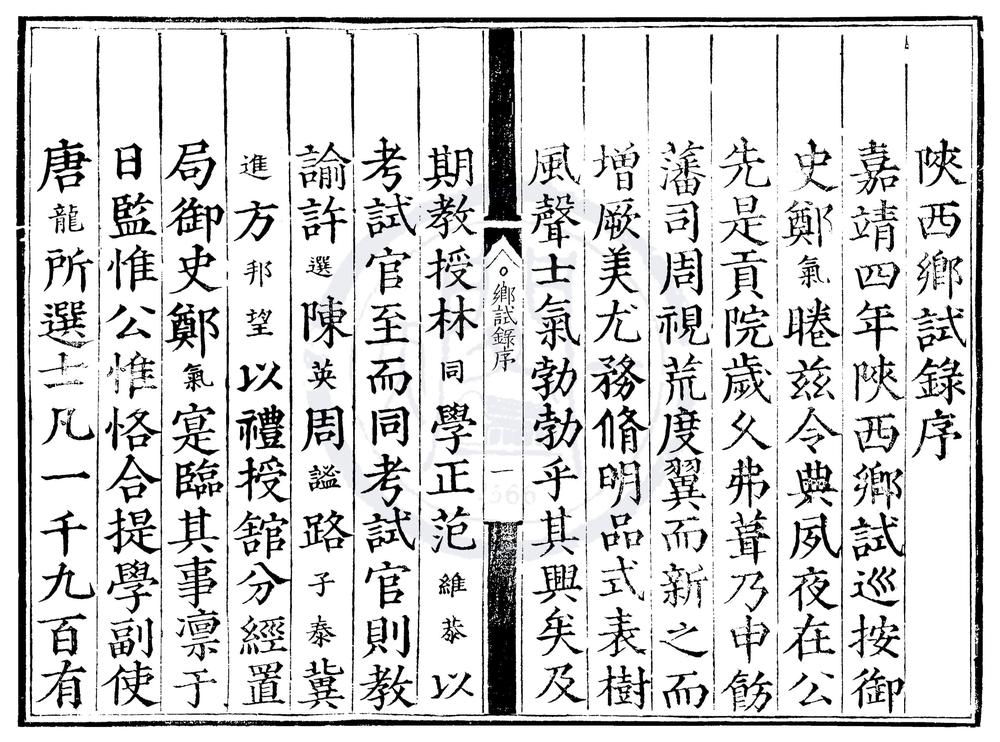 陜西鄉試錄序
嘉靖四年陜西鄉試巡按御
史鄭氣睠茲令典夙夜在公
先是貢院歲久弗葺乃申飭
藩司周視荒度翼而新之而
增厥美尤務脩明品式表樹
風聲士氣勃勃乎其興矣及
鄉試錄序
一
期教授林同學正范維恭以
考試官至而同考試官則教
諭許選陳英周謐路子泰冀
進方邦望以禮授舘分經置
局御史鄭氣寔臨其事凛于
日監惟公惟恪合提學副使
唐龍所選士凡一千九百有